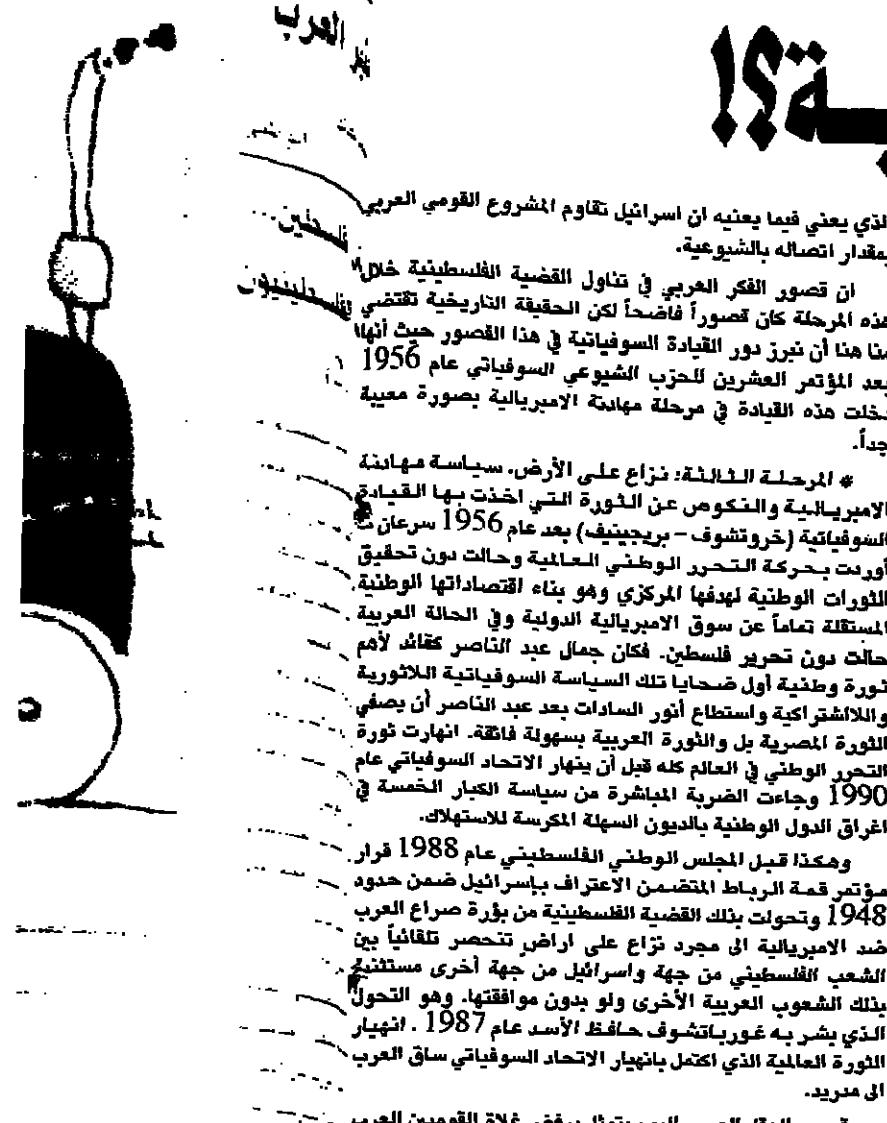 ـة؟!
العرب
فلسطين...
فلسطينيون
الذي يعني فيما يعنيه ان اسرائيل تقاوم المشروع القومي العربي
بمقدار اتصاله بالشيوعية.
ان قصور الفكر العربي في تناول القضية الفلسطينية خلال
هذه المرحلة كان قصوراً فاضحاً لكن الحقيقة التاريخية تقتضي
منا هنا أن نبرز دور القيادة السوفياتية في هذا القصور حيث أنها
بعد المؤتمر العشرين للحزب الشيوعي السوفياتي عام 1956
دخلت هذه القيادة في مرحلة مهادنة الامبريالية بصورة معيبة
جداً.
* المرحلة الثالثة: نزاع على الأرض. سياسة مهادنة
الامبريالية والنكوص عن الثورة التي اخذت بها القيادة
السوفياتية (خروتشوف - بريجينيف) بعد عام 1956 سرعان
أوردت بحركة التحرر الوطني العالمية وحالت دون تحقيق
الثورات الوطنية لهدفها المركزي وهو بناء اقتصاداتها الوطنية
المستقلة تماماً عن سوق الامبريالية الدولية وفي الحالة العربية
حالت دون تحرير فلسطين. فكان جمال عبد الناصر كقائد لأهم
ثورة وطنية أول ضحايا تلك السياسة السوفياتية اللاثورية
واللااشتراكية واستطاع أنور السادات بعد عبد الناصر أن يصفي
الثورة المصرية بل والثورة العربية بسهولة فائقة. انهارت ثورة
التحرر الوطني في العالم كله قبل أن ينهار الاتحاد السوفياتي عام
1990 وجاءت الضربة المباشرة من سياسة الكبار الخمسة في
اغراق الدول الوطنية بالديون السهلة المكرسة للاستهلاك.
وهكذا قبل المجلس الوطني الفلسطيني عام 1988 قرار
مؤتمر قمة الرباط المتضمن الاعتراف بإسرائيل ضمن حدود
1948 وتحولت بذلك القضية الفلسطينية من بؤرة صراع العرب
ضد الامبريالية الى مجرد نزاع على اراضٍ تنحصر تلقائياً بين
الشعب الفلسطيني من جهة واسرائيل من جهة أخرى مستثنية
بذلك الشعوب العربية الأخرى ولو بدون موافقتها. وهو التحول
الذي بشر به غورباتشوف حافظ الأسد عام 1987 . انهيار
الثورة العالمية الذي اكتمل بانهيار الاتحاد السوفياتي ساق العرب
الى مدريد.